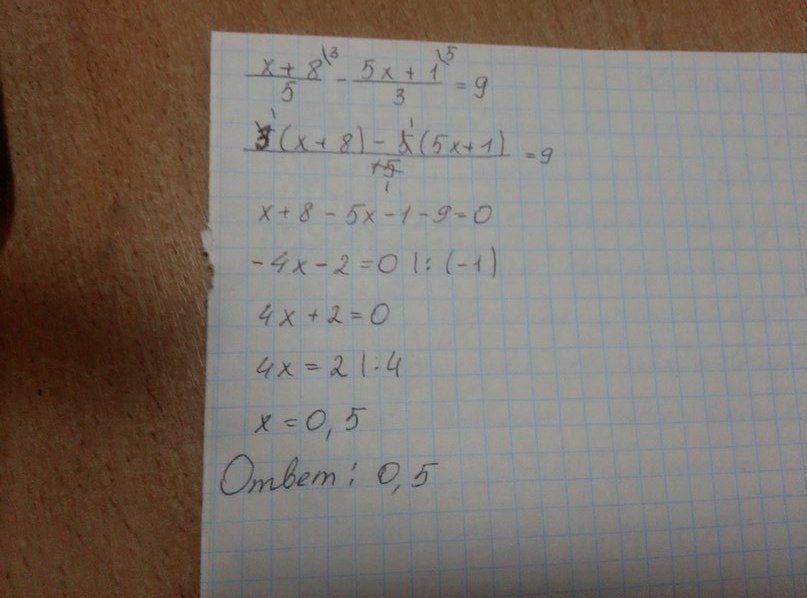 x+8\3 / 5 - 5x+1\5 / 3 = 9
3(x+8) - 5(5x+1) / 15 = 9
x+8-5x-1-9=0
-4x-2=0 |:(-1)
4x+2=0
4x=2 |:4
x=0,5
Ответ: 0,5